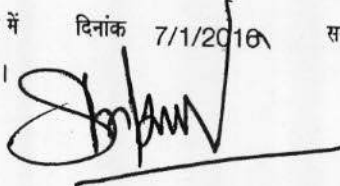 में दिनांक 7/1/2016 स
।